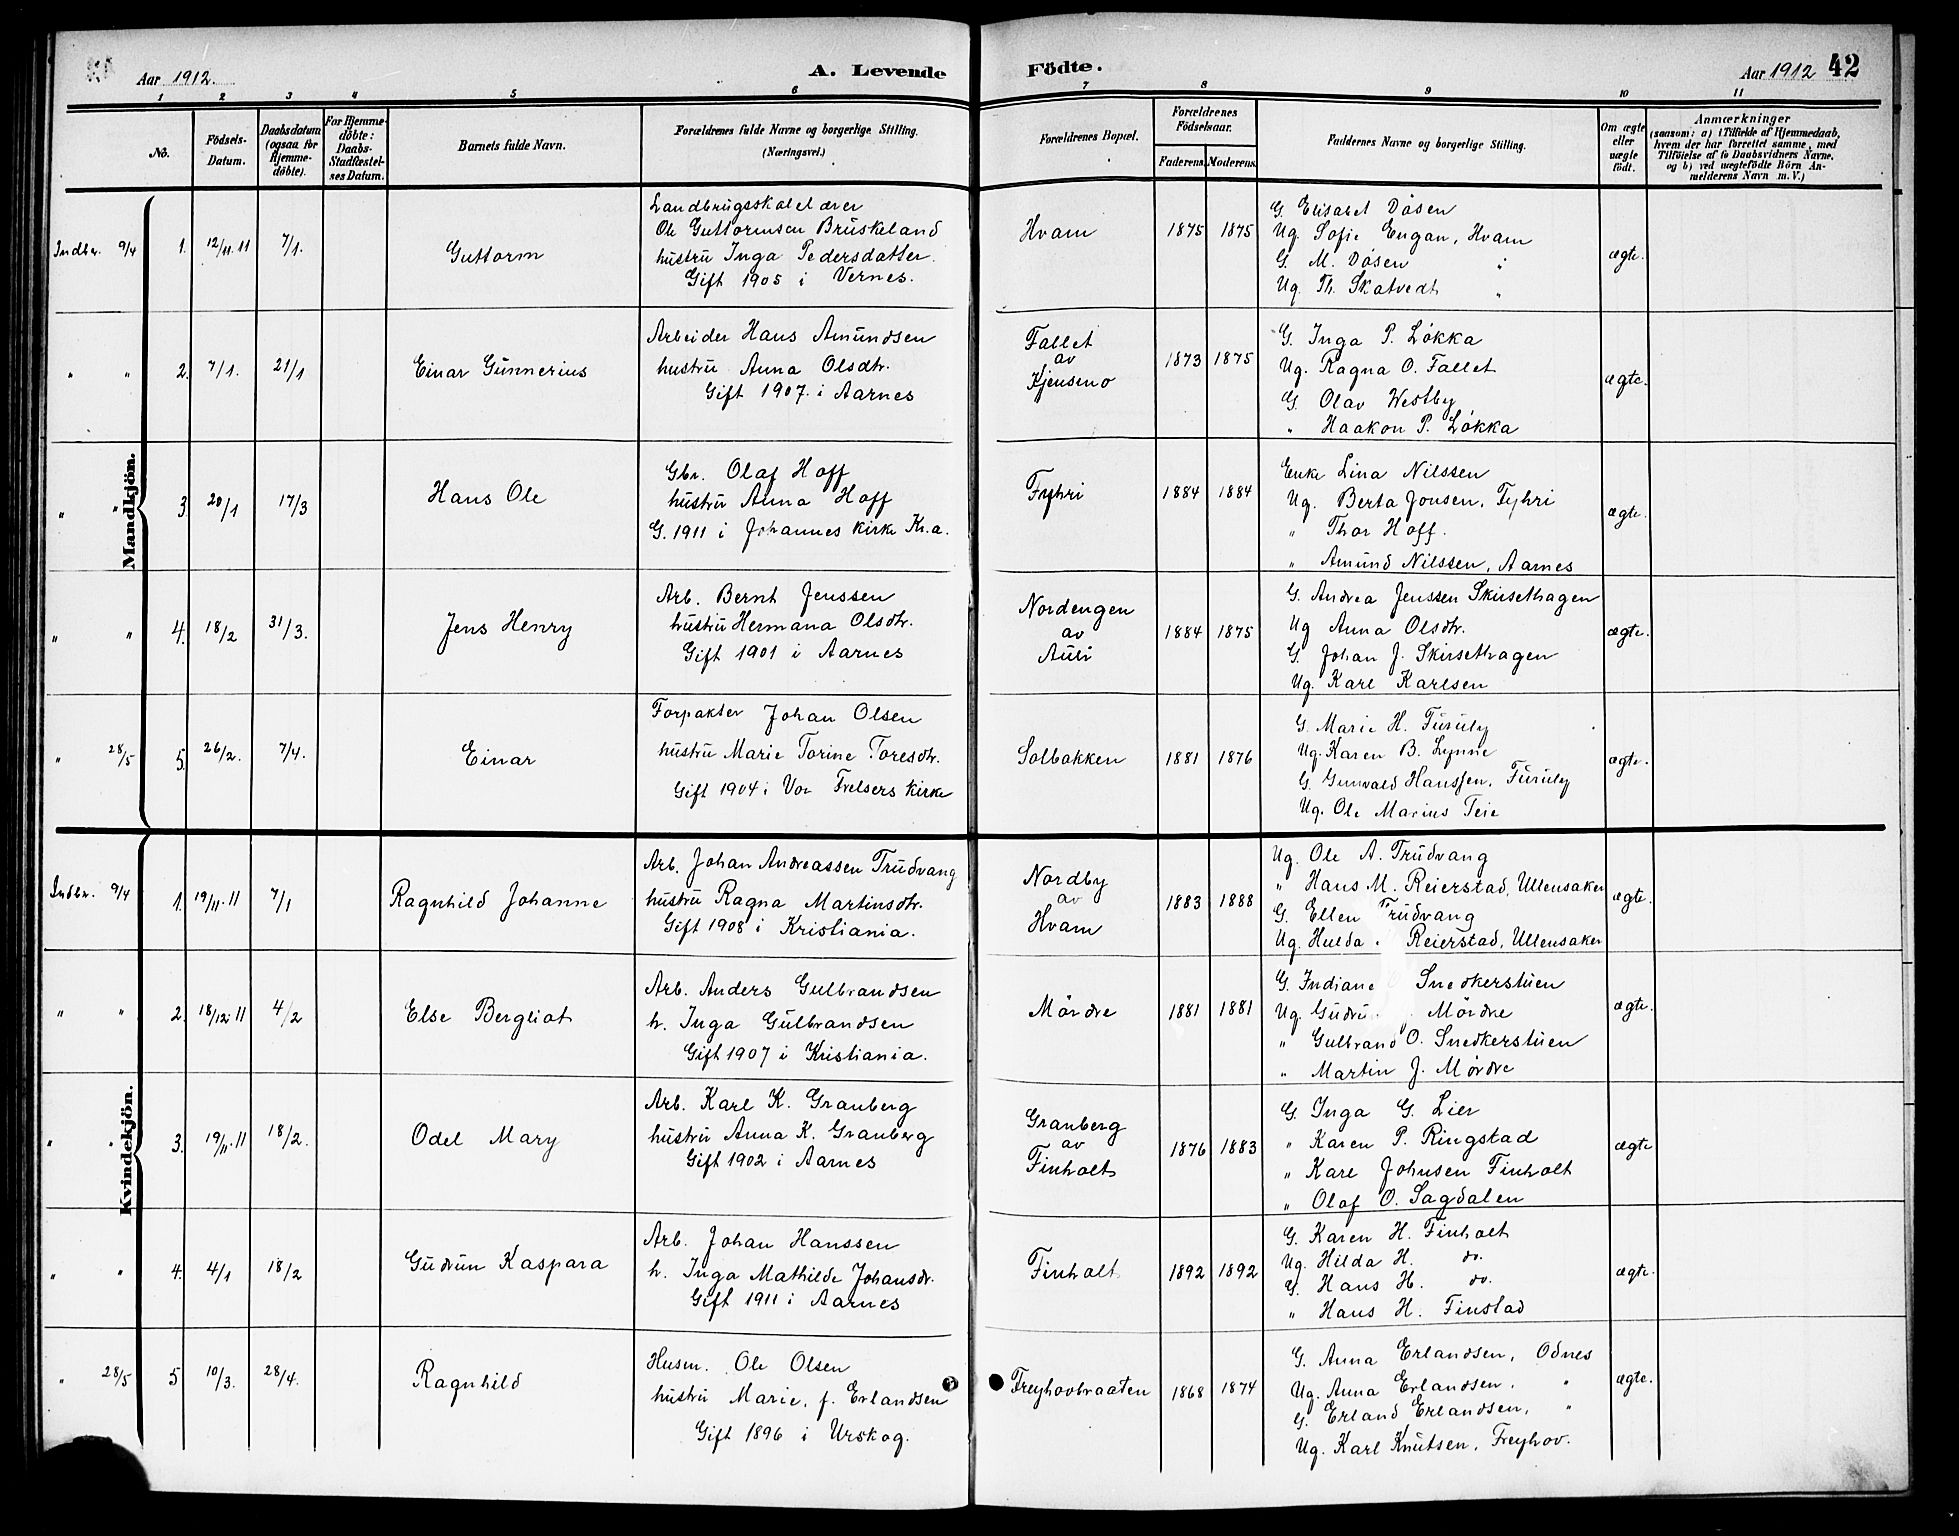 Aar 1912. A. Levende Födte. Aar 1912 42
1 2 3 4 5 6 7 8 9 10 11
No.
Födsels-
Datum.
Daabsdatum
(ogsaa for
Hjemme-
döbte).
For Hjemme-
döbte:
Daabs-
Stadfæstel-
ses Datum.
Barnets fulde Navn.
Forældrenes fulde Navne og borgerlige Stilling.
(Næringsvei.)
Forældrenes Bopæl.
Forældrenes
Födselsaar.
Faderens. Moderens.
Faddernes Navne og borgerlige Stilling.
Om ægte
eller
uægte
födt.
Anmærkninger
(saasom: a) i Tilfælde af Hjemmedaab,
hvem der har forrettet samme, med
Tilföielse af to Daabsvidners Navne,
og b) ved uægtefödte Börn An-
melderens Navn m. V.)
Mandkjön.
Indbr. 9/4 1. 12/11.11 7/1. Guttorm
Landbrugsskolelærer
Ole Guttormsen Bruskeland
hustru Inga Pedersdatter.
Gift 1905 i Vernes.
Hvam 1875 1875
G. Elisabet Døsen
Ug. Sofie Engan, Hvam
G. M. Døsen "
Ug. Th. Skatvedt "
ægte.
" " 2. 7/1. 21/1 Einar Gunnerius
Arbeider Hans Amundsen
hustru Anna Olsdtr.
Gift 1907. i Aarnes
Fallet
av
Kjenseno
1873 1875
G. Inga P. Løkka
Ug. Ragna O. Fallet
G. Olav Westby
" Haakon P. Løkka
ægte.
" " 3. 20/1 17/3 Hans Ole
Gbr. Olaf Hoff
hustru Anna Hoff
G. 1911 i Johannes kirke Kr.a.
Fyhri 1884 1884
Enke Lina Nilssen
Ug. Berta Jonsen, Fyhri
" Thor Hoff.
" Amund Nilssen, Aarnes
ægte.
" " 4. 18/2 31/3. Jens Henry
Arb. Bernt Jenssen
hustru Hermana Olsdtr.
Gift 1901 i Aarnes
Nordengen
av
Auli
1884 1875
G. Andrea Jenssen Skirsethagen
Ug Anna Olsdtr.
G. Johan J. Skirsethagen
Ug. Karl Karlsen
ægte.
" 28/5 5. 26/2. 7/4. Einar
Forpakter Johan Olsen
hustru Marie Torine Toresdtr.
Gift 1904 i Vor Frelsers kirke
Solbakken 1881 1876
G. Marie H. Furuly
Ug. Karen B. Lynne
G. Gunvald Hanssen, Furuly
Ug. Ole Marius Teie
ægte.
Kvindekjön.
Indbr. 9/4 1. 19/11.11 7/1 Ragnhild Johanne
Arb. Johan Andreassen Trudvang
hustru Ragna Martinsdtr.
Gift 1908 i Kristiania.
Nordby
av
Hvam
1883 1888
Ug. Ole A. Trudvang
" Hans M. Reierstad, Ullensaker
G. Ellen Trudvang
Ug. Hulda Reierstad, Ullensaker
ægte.
" " 2. 18/12.11 4/2 Else Bergliot
Arb. Anders Gulbrandsen
h. Inga Gulbrandsen
Gift 1907 i Kristiania.
Mørdre 1881 1881
G. Indiane Snedkerstuen
Ug. Mørdre
" Gulbrand O. Snedkerstuen
" Martin J. Mørdre
ægte.
" " 3. 19/11.11 18/2. Odel Mary
Arb. Karl K. Granberg
hustru Anna K. Granberg
Gift 1902 i Aarnes
Granberg
av
Finholt
1876 1883
G. Inga G. Lier
" Karen P. Ringstad
" Karl Johnsen Finholt
" Olaf O. Sagdalen
ægte
" " 4. 4/1 18/2 Gudrun Kaspara
Arb. Johan Hanssen
h. Inga Mathilde Johansdr.
Gift 1911 i Aarnes
Finholt 1892 1892
G. Karen H. Finholt
Ug. Hilda H. do.
G. Hans H. do.
" Hans H. Finstad
ægte.
" 28/5 5 10/3. 28/4. Ragnhild
Husm. Ole Olsen
hustru Marie, f. Erlandsen
Gift 1896 i Urskog.
Freyhovbraaten 1868 1874
G. Anna Erlandsen, Odnes
Ug. Anna Erlandsen, "
G. Erland Erlandsen, "
Ug. Karl Knutsen, Freyhov.
ægte.